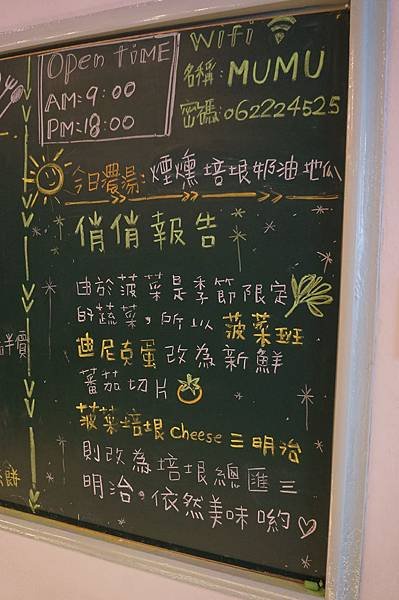 Open TiME
AM: 9:00
PM: 18:00
Wifi
名稱: MUMU
密碼: 062224525
今日濃湯: 煙燻培垠奶油地瓜
俏俏報告
由於菠菜是季節限定
的蔬菜,所以菠菜班
迪尼克蛋改為新鮮
蕃茄切片
菠菜培垠cheese三明治
則改為培垠總匯三
明治。依然美味喲♡
半價
餅